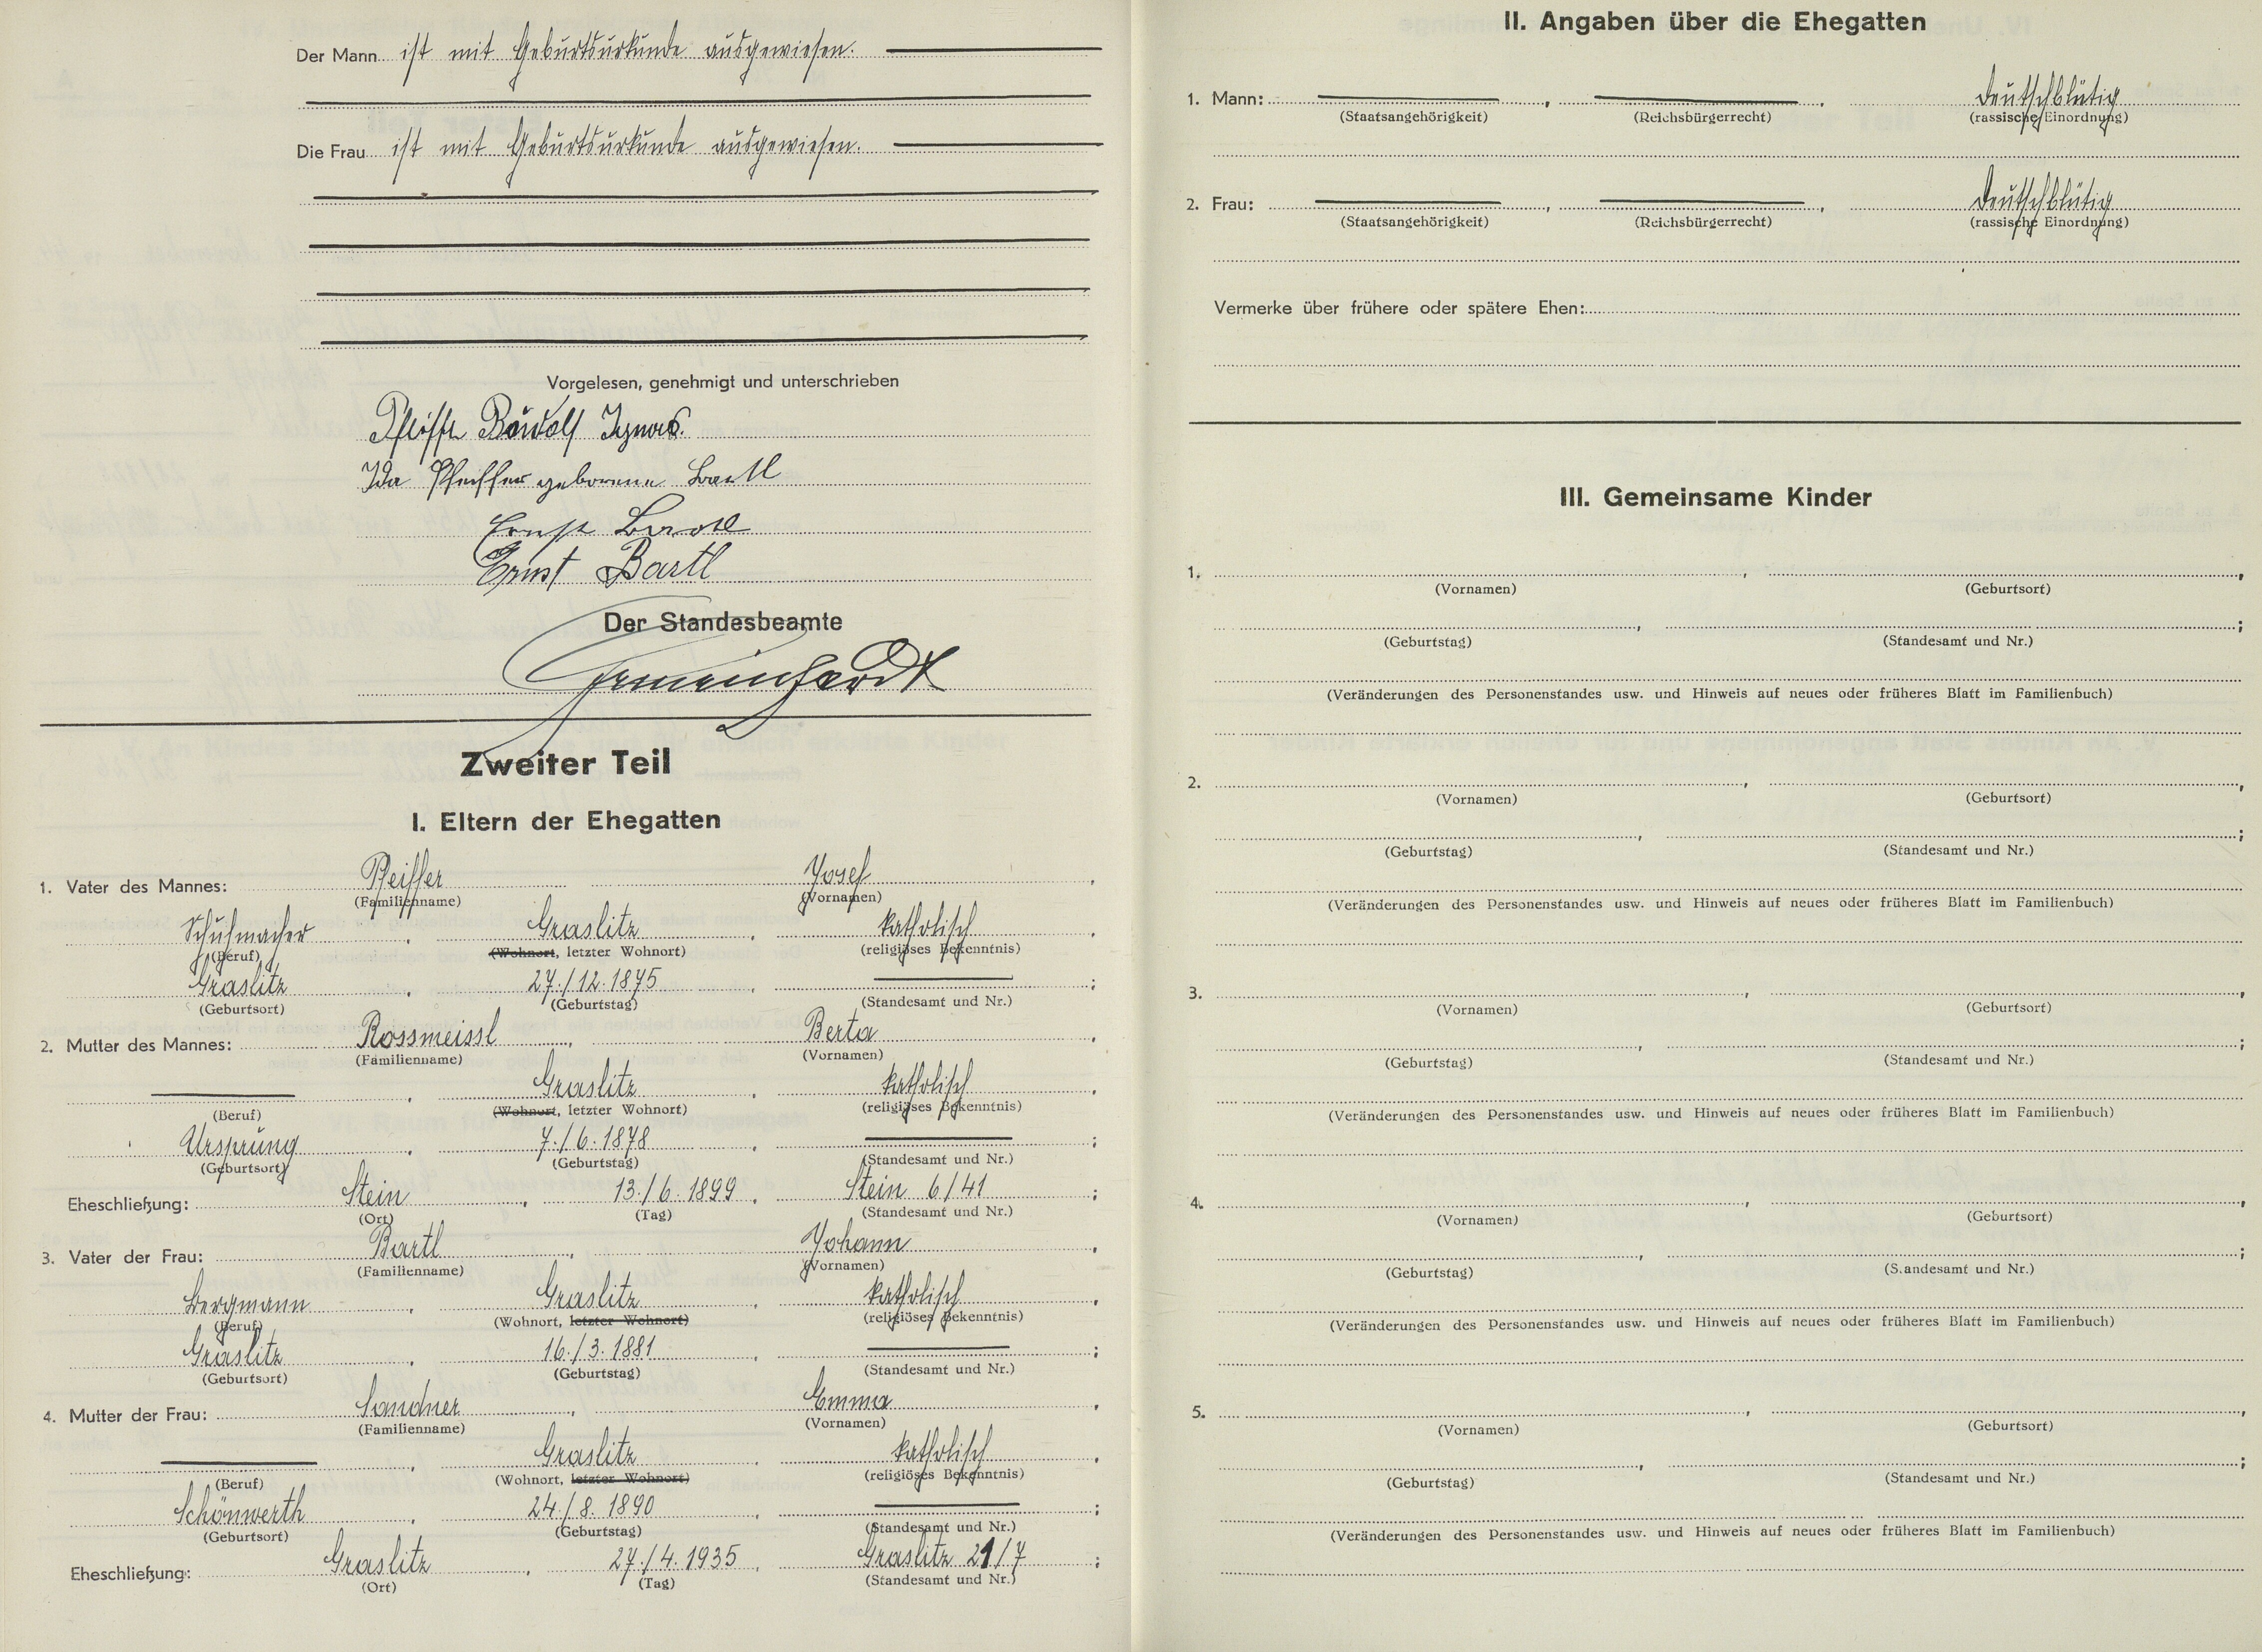 Der Mann ist mit Geburtsurkunde ausgewiesen.
Die Frau ist mit Geburtsurkunde ausgewiesen.
Vorgelesen, genehmigt und unterschrieben
Pfeiffer Rudolf Ignas.
Ida Pfeiffer geborene Bartl
Ernst
Ernst Bartl
Der Standesbeamte
Zweiter Teil
I. Eltern der Ehegatten
1. Vater des Mannes: Pfeiffer Josef ,
(Familienname) (Vornamen)
Schuhmacher , Graslitz , katholisch ,
(Beruf) (Wohnort, letzter Wohnort) (religiöses Bekenntnis)
Graslitz , 27./12.1875 , ;
(Geburtsort) (Geburtstag) (Standesamt und Nr.)
2. Mutter des Mannes: Rossmeissl , Berta ,
(Familienname) (Vornamen)
, Graslitz , katholisch ,
(Beruf) (Wohnort, letzter Wohnort) (religiöses Bekenntnis)
Ursprung , 7./6.1878 , ;
(Geburtsort) (Geburtstag) (Standesamt und Nr.)
Eheschließung: Stein , 13./6.1899 , Stein 6/41 ;
(Ort) (Tag) (Standesamt und Nr.)
3. Vater der Frau: Bartl , Johann ,
(Familienname) (Vornamen)
Bergmann , Graslitz , katholisch ,
(Beruf) (Wohnort, letzter Wohnort) (religiöses Bekenntnis)
Graslitz , 16./3.1881 , ;
(Geburtsort) (Geburtstag) (Standesamt und Nr.)
4. Mutter der Frau: Sandner , Emma ,
(Familienname) (Vornamen)
, Graslitz , katholisch ,
(Beruf) (Wohnort, letzter Wohnort) (religiöses Bekenntnis)
Schönwerth , 24./8.1890 , ;
(Geburtsort) (Geburtstag) (Standesamt und Nr.)
Eheschließung: Graslitz , 27./4.1935 , Graslitz 21/7 ;
(Ort) (Tag) (Standesamt und Nr.)
II. Angaben über die Ehegatten
1. Mann: , , deutschblütig
(Staatsangehörigkeit) (Reichsbürgerrecht) (rassische Einordnung)
2. Frau: , , deutschblütig
(Staatsangehörigkeit) (Reichsbürgerrecht) (rassische Einordnung)
Vermerke über frühere oder spätere Ehen:
III. Gemeinsame Kinder
1. , ,
(Vornamen) (Geburtsort)
, ;
(Geburtstag) (Standesamt und Nr.)
(Veränderungen des Personenstandes usw. und Hinweis auf neues oder früheres Blatt im Familienbuch)
2. , ,
(Vornamen) (Geburtsort)
, ;
(Geburtstag) (Standesamt und Nr.)
(Veränderungen des Personenstandes usw. und Hinweis auf neues oder früheres Blatt im Familienbuch)
3. , ,
(Vornamen) (Geburtsort)
, ;
(Geburtstag) (Standesamt und Nr.)
(Veränderungen des Personenstandes usw. und Hinweis auf neues oder früheres Blatt im Familienbuch)
4. , ,
(Vornamen) (Geburtsort)
, ;
(Geburtstag) (S.andesamt und Nr.)
(Veränderungen des Personenstandes usw. und Hinweis auf neues oder früheres Blatt im Familienbuch)
5. , ,
(Vornamen) (Geburtsort)
, ;
(Geburtstag) (Standesamt und Nr.)
(Veränderungen des Personenstandes usw. und Hinweis auf neues oder früheres Blatt im Familienbuch)